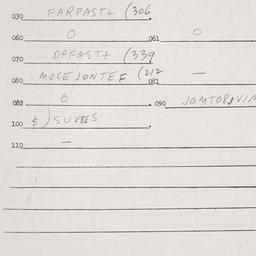 030 FARFAST+ (306
060 0 061 0
070 OPFAST+ (339
080 MOLEJONTEF (212 081 —
082 0 090 JOMTOBJVIN
100 $) SUKBES
110 —